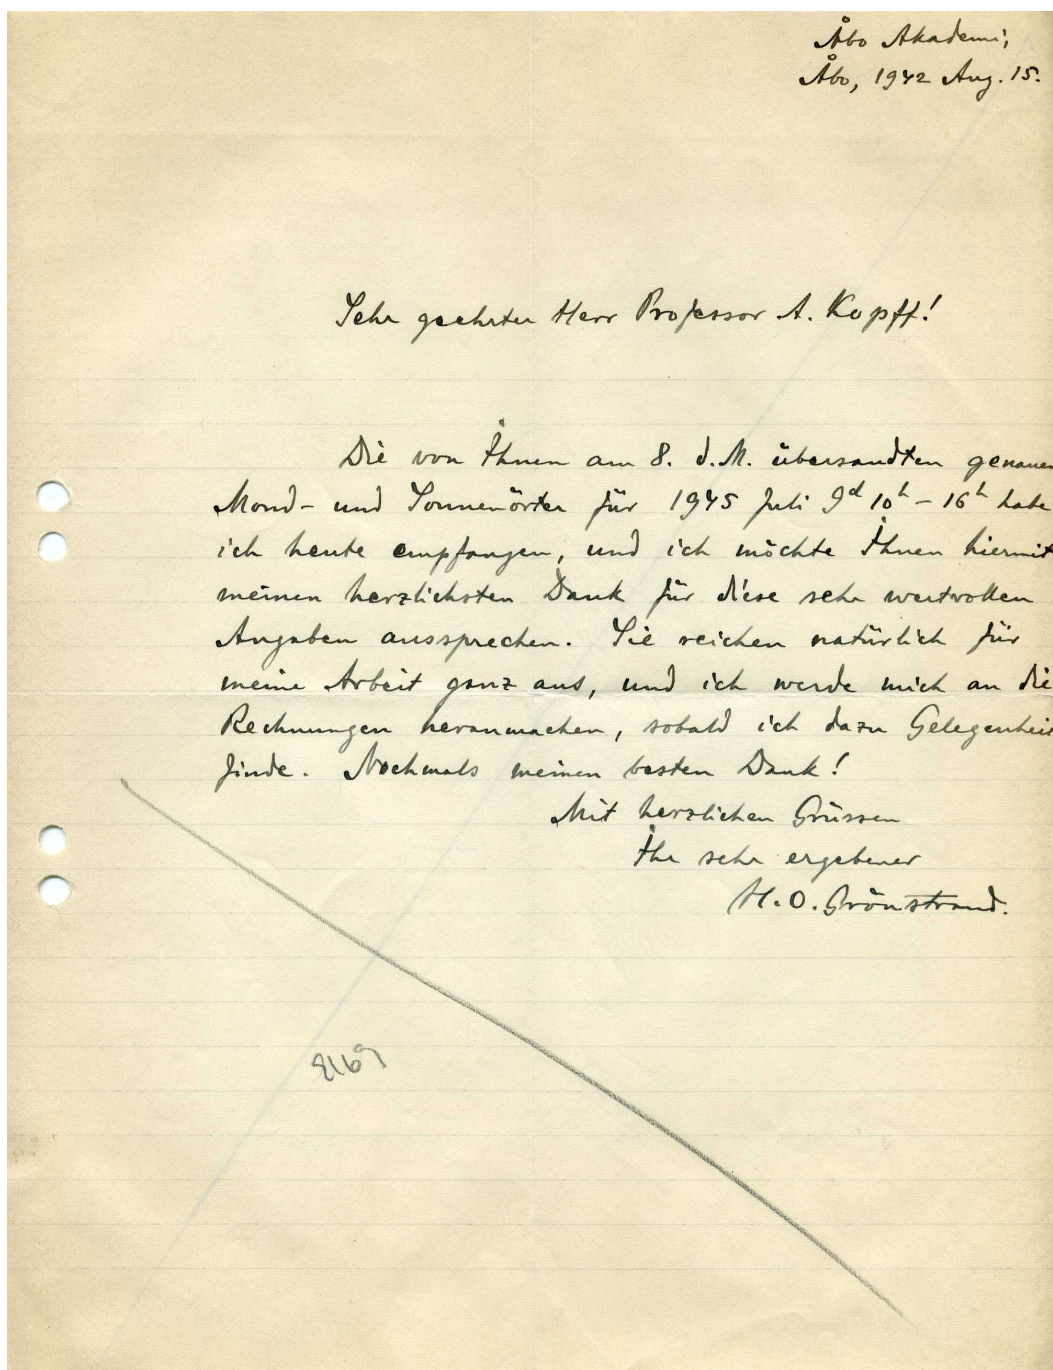 Åbo Akademi,
Åbo, 1942 Aug. 15.
Sehr geehrter Herr Professor A. Kopff!
Die von Ihnen am 8. d. M. übersandten genauen
Mond- und Sonnenörter für 1945 Juli 9d 10h – 16h habe
ich heute empfangen, und ich möchte Ihnen hiermit
meinen herzlichsten Dank für diese sehr wertvollen
Angaben aussprechen. Sie reichen natürlich für
meine Arbeit ganz aus, und ich werde mich an die
Rechnungen heranmachen, sobald ich dazu Gelegenheit
finde. Nochmals meinen besten Dank!
Mit herzlichen Grüssen
Ihr sehr ergebener
H. O. Grönstrand.